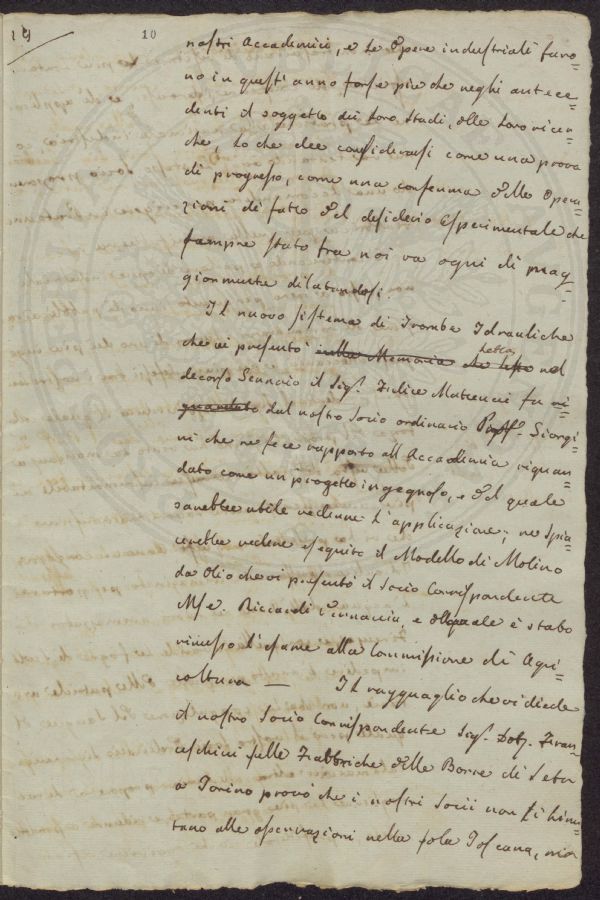 19 10
nostri Accademici, e le Opere industriali furo=
no in quest' anno forse più che negli antece=
denti il soggetto dei loro Studi, delle loro ricer=
che, lo che dee considerarsi come una prova
di progresso, come una conferma delle Opera=
zioni di fatto del desiderio Esperimentale che
sempre stato fra noi va ogni dì mag=
giormente dilatandosi.
Il nuovo sistema di Trombe Idrauliche
che vi presentò nella Memoria che lesse nel
decorso Gennaio il Sigr. Felice Matteucci fu ri=
guardato dal nostro Socio ordinario Proff. Giorgi=
ni che ne fece rapporto all' Accademia riguar=
dato come un progetto ingegnoso, e del quale
sarebbe utile vederne l'applicazione; ne spia=
cerebbe vedere eseguito il Modello di Molino
da Olio che vi presentò il Socio Corrispondente
Mse. Riccardi Vernaccia, e del quale è stato
rimesso l'esame alla Commissione di Agri=
coltura — Il ragguaglio che vi diede
il nostro Socio Corrispondente Sigr. Dott. Fran=
ceschini sulle Fabbriche delle Borre di Seta
a Torino provò che i nostri Socii non si limi=
tano alle osservazioni nella sola Toscana, ma